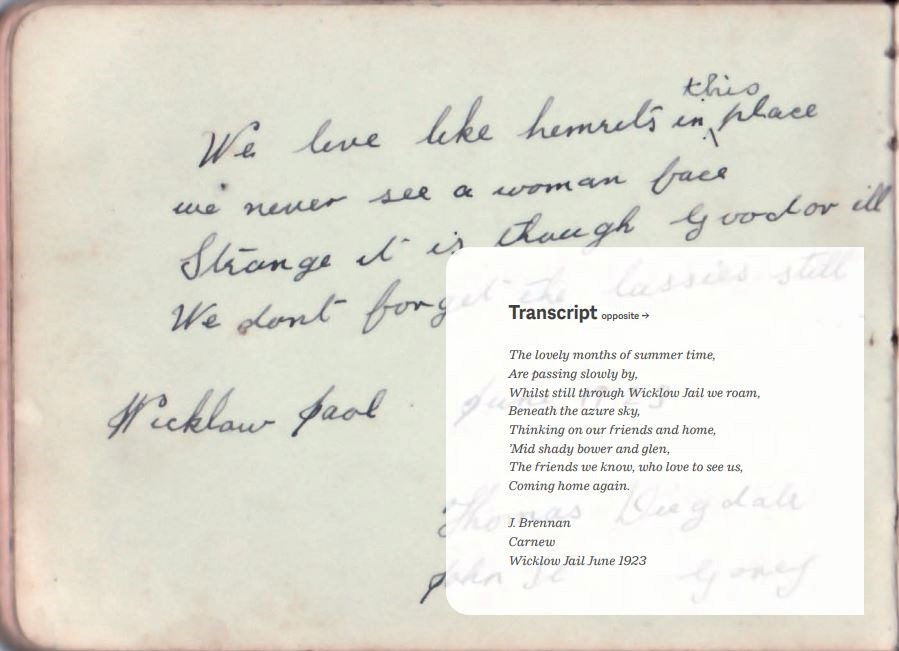 this
We live like hemrets in place
we never see a woman face
Strange it is though Good or ill
We dont forget the lassies still
Wicklow Jaol
June 1923
Thomas
John St Gorey
Transcript opposite →
The lovely months of summer time,
Are passing slowly by,
Whilst still through Wicklow Jail we roam,
Beneath the azure sky,
Thinking on our friends and home,
’Mid shady bower and glen,
The friends we know, who love to see us,
Coming home again.
J. Brennan
Carnew
Wicklow Jail June 1923